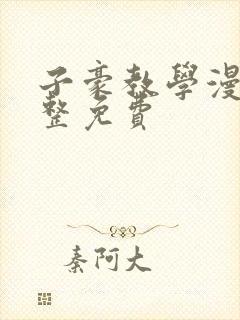 子豪教學漫
整免費
秦阿大